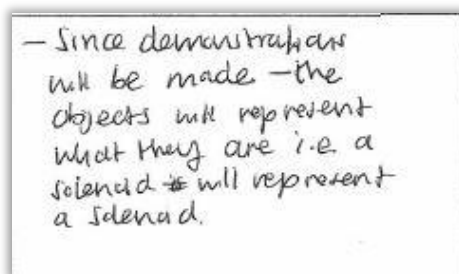 - Since demonstrations
will be made - the
objects will represent
what they are i.e a
solenoid will represent
a solenoid.